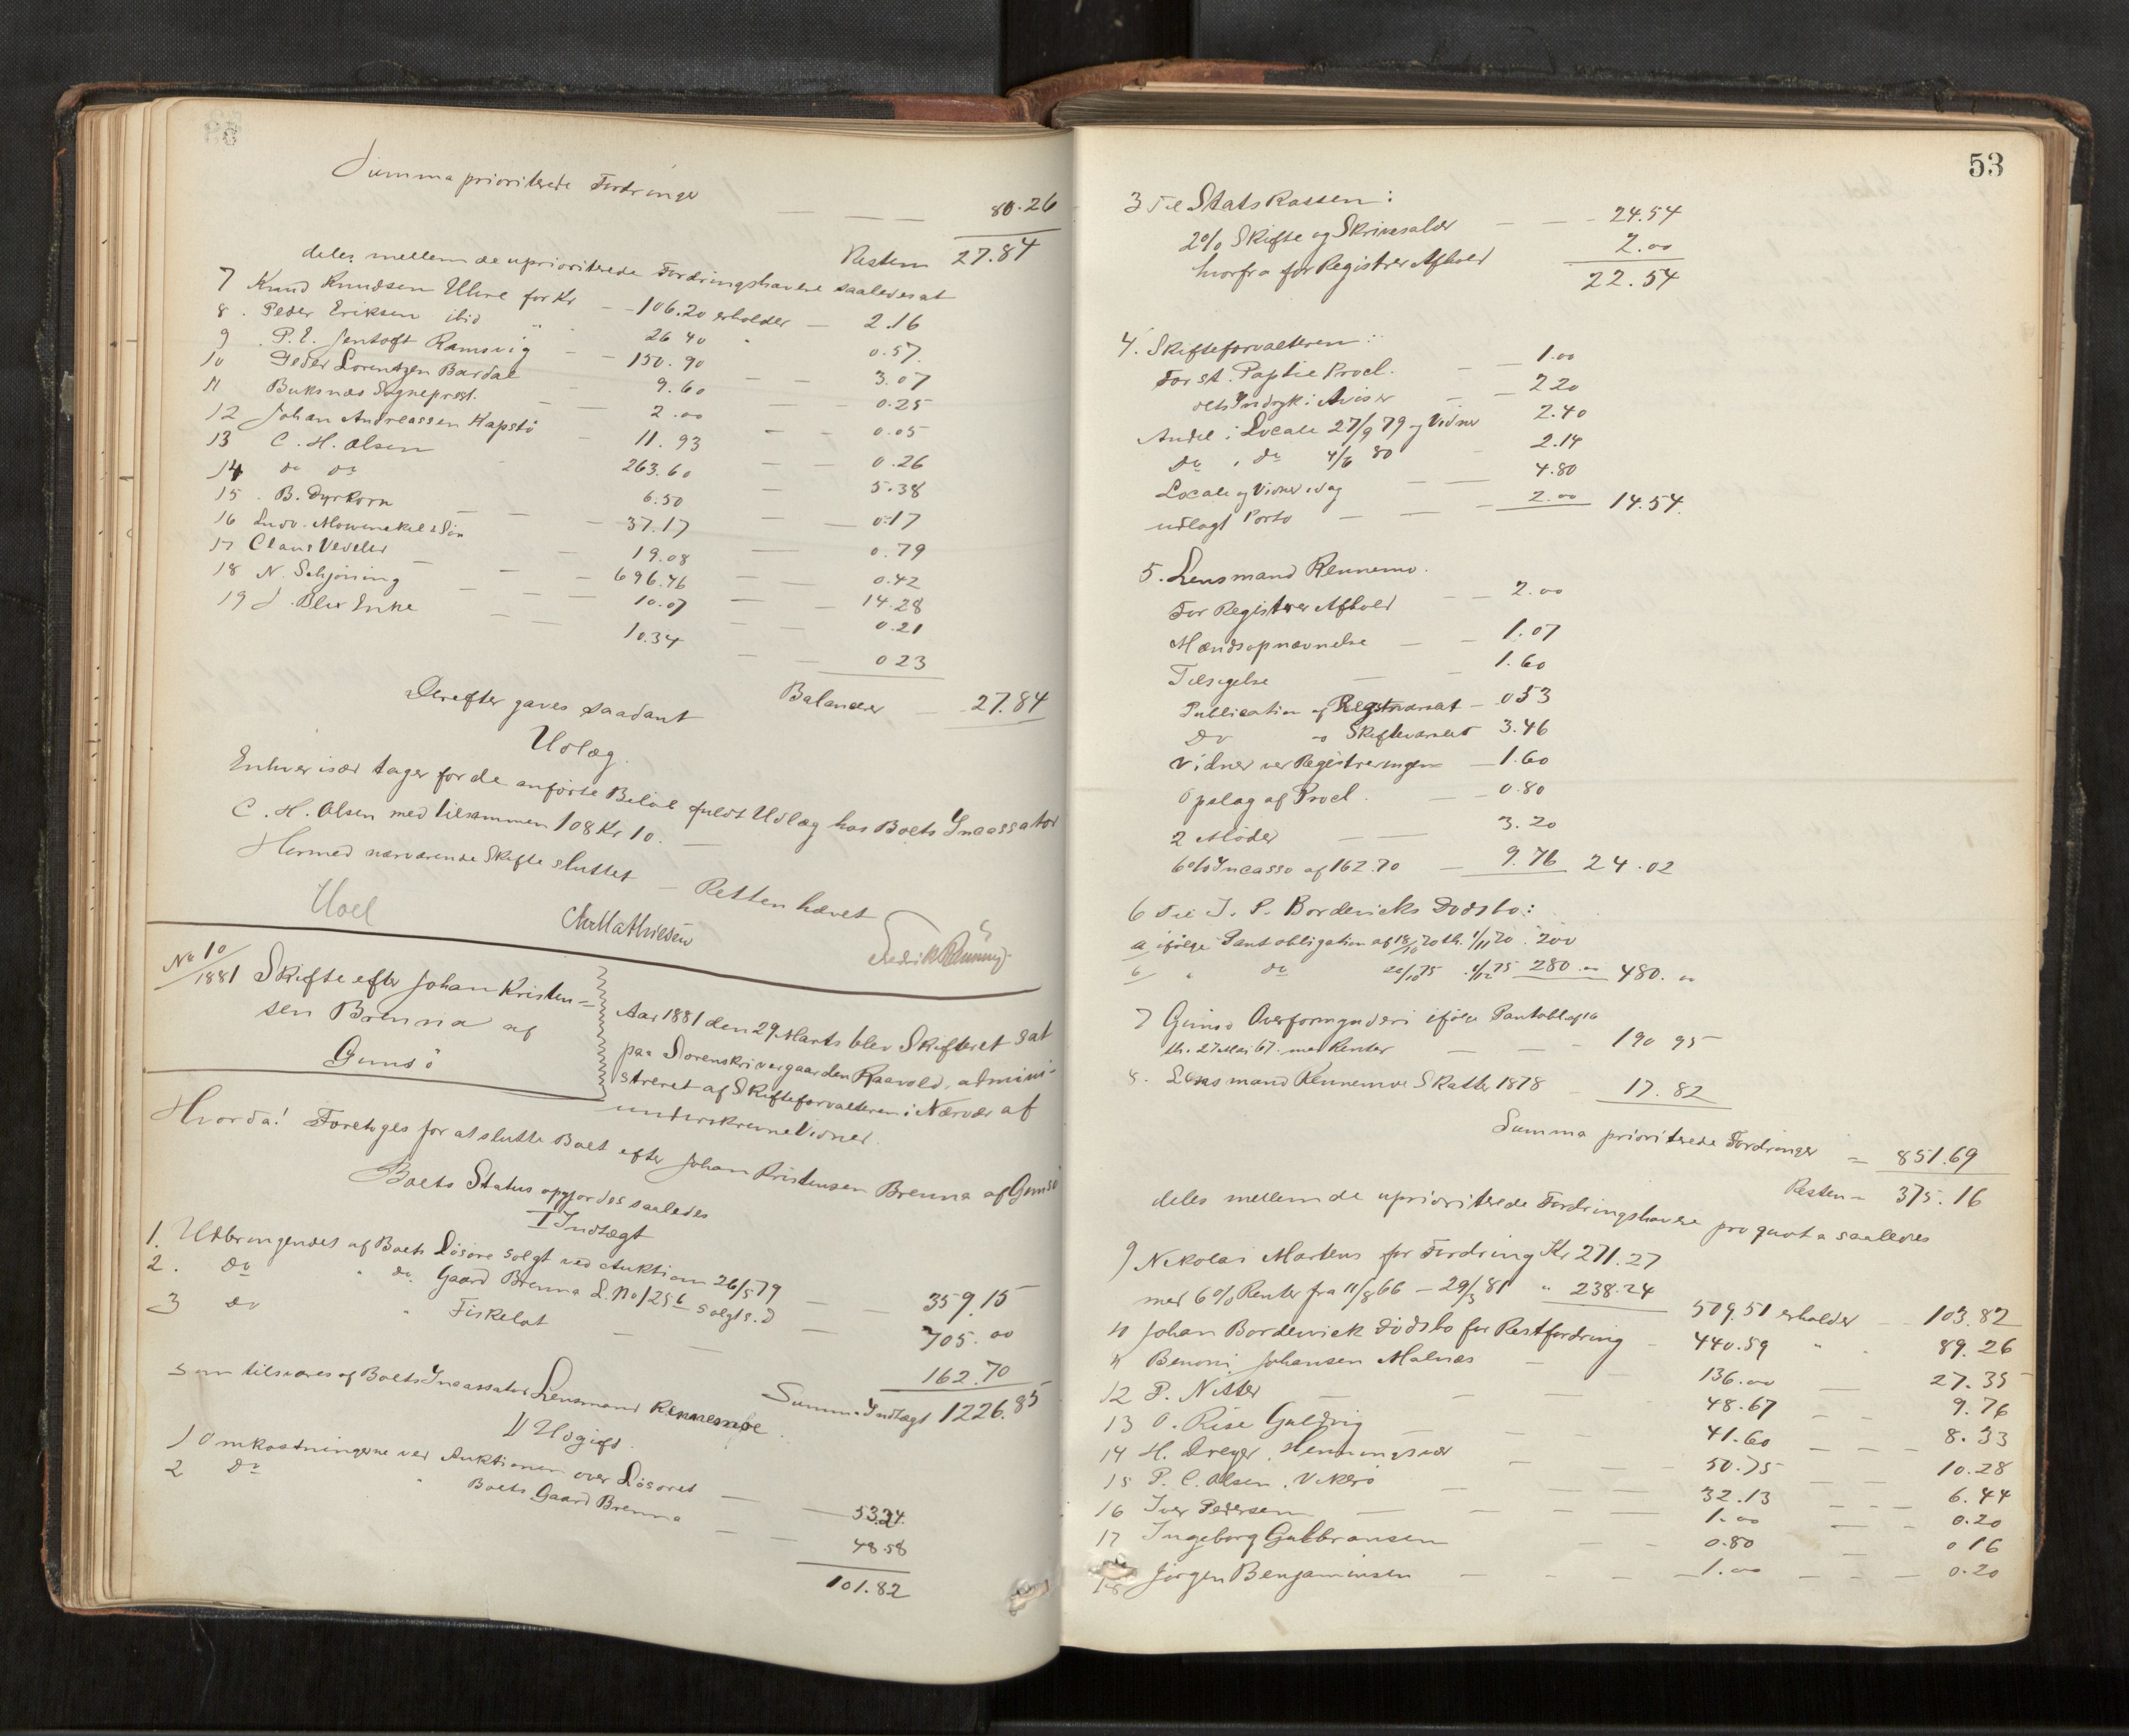 Summa prioriterede Fordringer — — — 80.26
Resten 27.84
deles mellem de uprioriterede Fordringshavere saaledes at
7 Knud Knudsen Uhre for Kr — 106.20 erholder — 2.16
8. Peder Eriksen ibid " 26 40 " 0.57
9 P. E. Jentoft Ramsvig — 150.90 — — 3.07
10 Peder Lorentzen Bardal — 9.60 — 0.25
11 Buksnæs Sogneprest. — — 2.00 — — 0.05
12 Johan Andreassen Kapstö — 11.93 — — 0.26
13 C. H. Olsen 263.60 — 5.38
14 do do 6.50 — 0.17
15. B. Dyrkorn — — 37.17 — 0.79
16 Ludv. Mowinckel & Sön — 19.08 — — 0.42
17 Claus Vedeler — — 696.46 — — 14.28
18 N. Schjöning — — — 10.07 — — 0.21
19 J. Blix Enke — — 10.34 — — 0 23
Balancerer — 27.84
Derefter gaves saadant
Udlæg.
Enhver især tager for de anförte Belöb fuldt Udlæg hos Boets Incassator
C. H. Olsen med tilsammen 108 Kr 10. —
Hermed nærværende Skifte sluttet — Retten hævet
Hoel Chr Mathiesen
No 10/1881 Skifte efter Johan Kristen-
sen Brenna af
Gimsö
Aar 1881 den 29 Marts blev Skifteret sat
paa Sorenskrivergaarden Raavold, admini-
streret af Skifteforvalteren i Nærvær af
underskrevne Vidner.
Hvorda! Foretoges for at slutte Boet efter Johan Kristensen Brenna af Gimsö
Boets Status opgjordes saaledes
I Indtægt
1. Udbringendet af Boets Lösöre solgt ved Auktion 26/5 79 — — 359.15
2. do " do. Gaard Brenna L. No 125 b solgt s. D — 705.00
3 do " Fiskelot — — 162.70
Summa Indtægt 1226.85
som tilsvares af Boets Incassator Lensmand Rennemoe.
II Udgift.
1 Omkostningerne ved Auktionen over Lösöret — — 53.24.
2 do " Boets Gaard Brenna — — 48.58
101.82
53
3 Til Statskassen:
2% Skifte og Skriversalær — — — 24.54
hvorfra for Registrer Afhold 2.00
22.54
4. Skifteforvalteren:
For st. Papiir Procl. — — 1.00
dets Indryk i Aviser — — 2 20
Andel i Locale 27/9 79 og Vidner 2.40
do, do 4/6 80 — 2.14
Locale og Vidner idag — — 4.80
udlagt Porto — — — 2.00 14.54.
5. Lensmand Rennemo.
For Registrer Afhold — — 2.00
Mændsopnævnelse — — 1.07
Tilsigelse — — 1.60
Publication af Registværsat — 0 53
do " Skifteværsat 3.46
Vidner ved Registreringen — 1.60
Opslag af Procl. — — 0.80
2 Möder — — 3.20
6% Incasso af 162.70 — 9.76 24.02
6 Til J. P. Bordevicks Dödsbo:
a ifölge Pantobligation af 18/10 70 th. 1/11 70. 200
b " do 20/10 75 . 1/12 75 280.00 480.00
7 Gimsö Overformynderi ifölge Pantobl af 16
th. 27 Mai 67. med Renter — — — 190 95
8. Lensmand Rennemoe Skatter 1878 — 17.82
Summa prioriterede Fordringer — 851.69
Resten — 375.16
deles mellem de uprioriterede Fordringshavere pro quota saaledes
9 Nikolai Martens for Fordring Kr 271.27
med 6% Renter fra 11/8 66 — 29/3 81 " 238.24
509.51 erholder — 103.82
10 Johan Bordewick Dödsbo for Restfordring — 440.59 " " 89.26
11 Benoni Johansen Malnæs — — 136.00 — 27.35
12 P. Nitter — — — 48.67 — — 9.76
13 O. Rise Guldvig — — — 41.60 — — — 8.33
14 H. Dreyer, Henningsvær — — 50.75 — 10.28
15 P. C. Olsen, V.kerö — — — 32.13 — — — 6.44
16 Iver Pedersen — — — — 1.00 — — 0.20
17 Ingeborg Gulbransen — — 0.80 — 0 16
18 Jörgen Benjaminsen — — — — 1.00 — — — 0.20